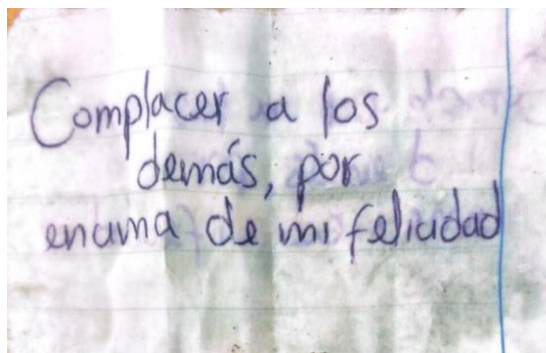 Complacer a los
demás, por
encima de mi felicidad